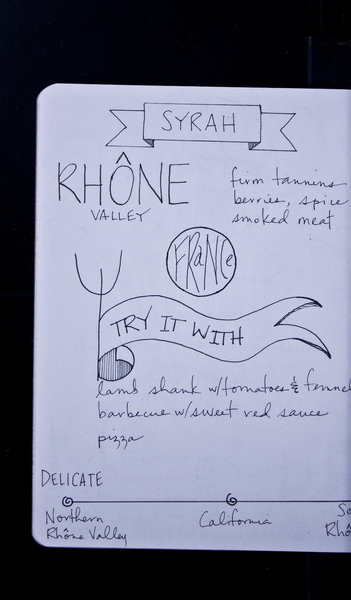 SYRAH
RHÔNE
VALLEY
firm tannins
berries, spice
smoked meat
FRANCE
TRY IT WITH
lamb shank w/tomatoes & fennel
barbecue w/sweet red sauce
pizza
DELICATE
Northern
Rhône Valley
California
So
Rhô